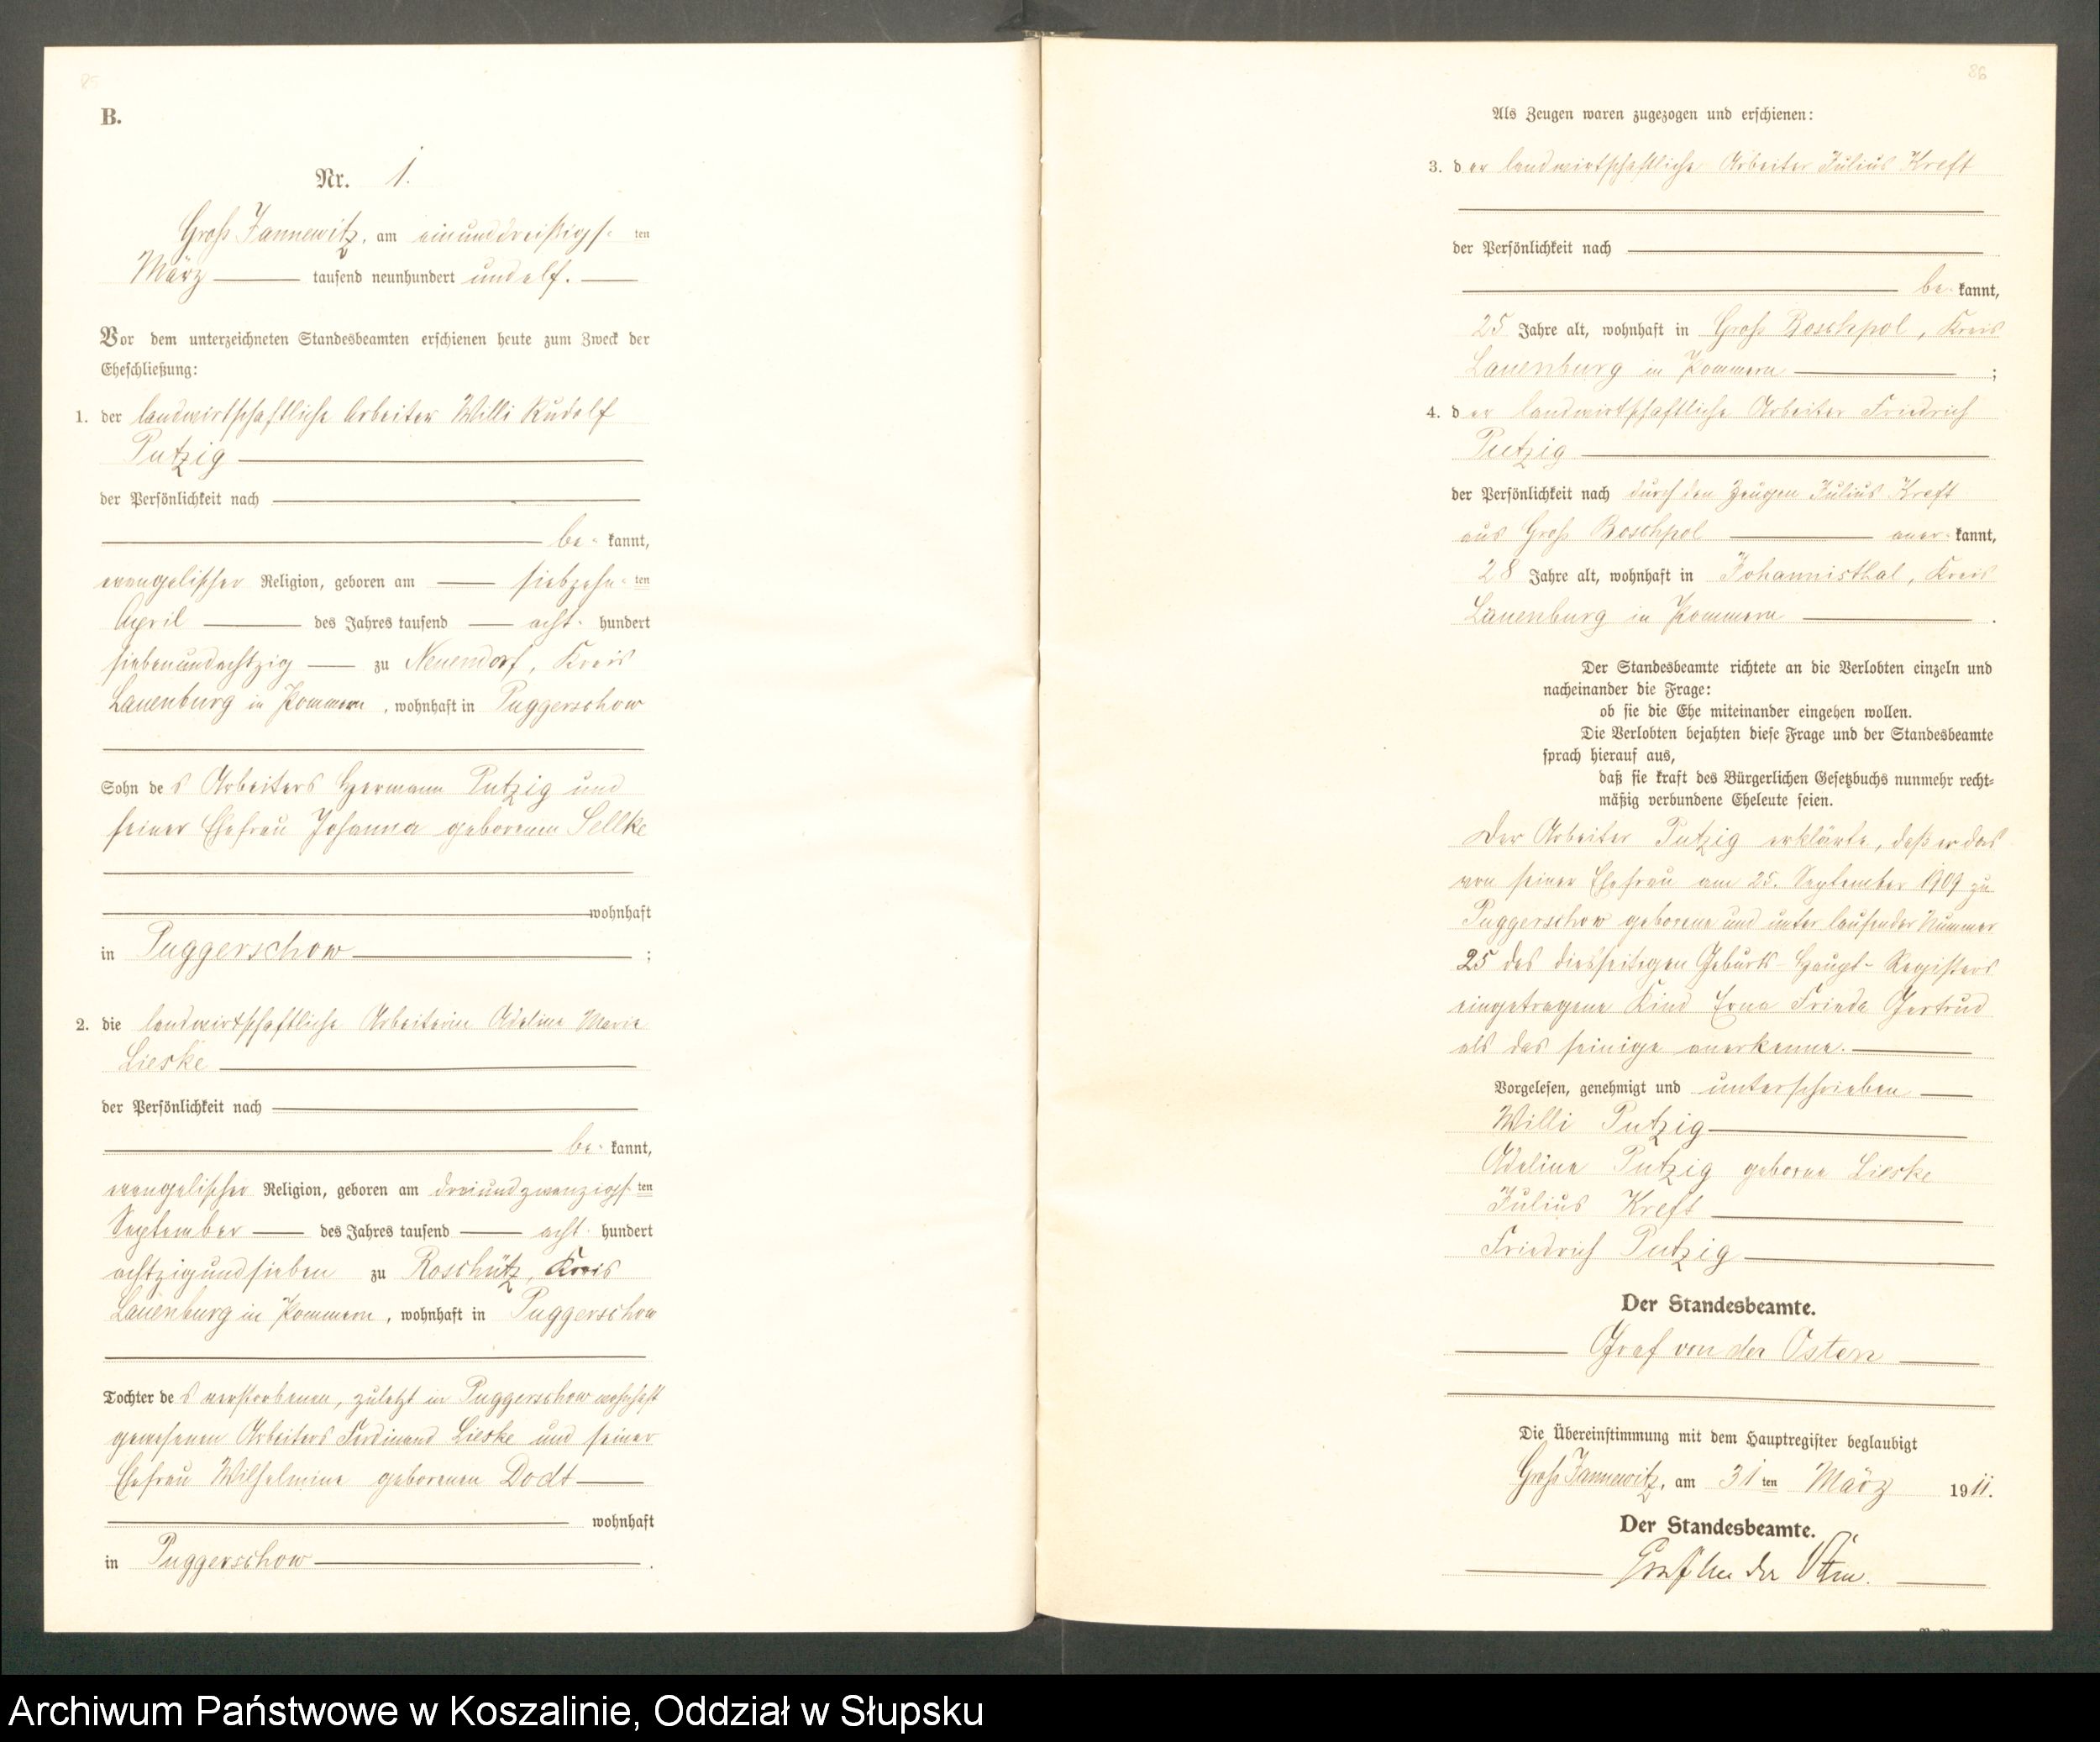 85
B.
Nr. 1.
Groß Jannewitz, am einunddreißigs ten
März tausend neunhundert und elf.
Vor dem unterzeichneten Standesbeamten erschienen heute zum Zweck der
Eheschließung:
1. der landwirtschaftliche Arbeiter Willi Rudolf
Putzig
der Persönlichkeit nach
be- kannt,
evangelischer Religion, geboren am siebzehn- ten
April des Jahres tausend acht- hundert
siebenundachtzig zu Neuendorf, Kreis
Lauenburg in Pommern, wohnhaft in Puggerschow
Sohn des Arbeiters Hermann Putzig und
seiner Ehefrau Johanna geborenen Sellke
wohnhaft
in Puggerschow ;
2. die landwirtschaftliche Arbeiterin Adeline Marie
Lieske
der Persönlichkeit nach
be- kannt,
evangelischer Religion, geboren am dreiundzwanzigs- ten
September des Jahres tausend acht- hundert
achtzigundsieben zu Roschütz, Kreis
Lauenburg in Pommern, wohnhaft in Puggerschow
Tochter des verstorbenen, zuletzt in Puggerschow wohnhaft
gewesenen Arbeiters Ferdinand Lieske und seiner
Ehefrau Wilhelmine geborenen Dodt
wohnhaft
in Puggerschow .
86
Als Zeugen waren zugezogen und erschienen:
3. der landwirtschaftliche Arbeiter Julius Kreft
der Persönlichkeit nach
be- kannt,
25 Jahre alt, wohnhaft in Groß Boschpol, Kreis
Lauenburg in Pommern ;
4. der landwirtschaftliche Arbeiter Friedrich
Putzig
der Persönlichkeit nach durch den Zeugen Julius Kreft
aus Groß Boschpol aner- kannt,
28 Jahre alt, wohnhaft in Johannisthal, Kreis
Lauenburg in Pommern .
Der Standesbeamte richtete an die Verlobten einzeln und
nacheinander die Frage:
ob sie die Ehe miteinander eingehen wollen.
Die Verlobten bejahten diese Frage und der Standesbeamte
sprach hierauf aus,
daß sie kraft des Bürgerlichen Gesetzbuchs nunmehr recht-
mäßig verbundene Eheleute seien.
Der Arbeiter Putzig erklärte, daß er das
von seiner Ehefrau am 25. September 1909 zu
Puggerschow geborene und unter laufender Nummer
25 des diesseitigen Geburts-Haupt-Registers
eingetragene Kind Erna Frieda Gertrud
als das seinige anerkenne.
Vorgelesen, genehmigt und unterschrieben
Willi Putzig
Adeline Putzig geborne Lieske
Julius Kreft
Friedrich Putzig
Der Standesbeamte.
Graf von der Osten
Die Übereinstimmung mit dem Hauptregister beglaubigt
Groß Jannewitz, am 31 ten März 1911.
Der Standesbeamte.
Graf von der Osten.
Archiwum Państwowe w Koszalinie, Oddział w Słupsku